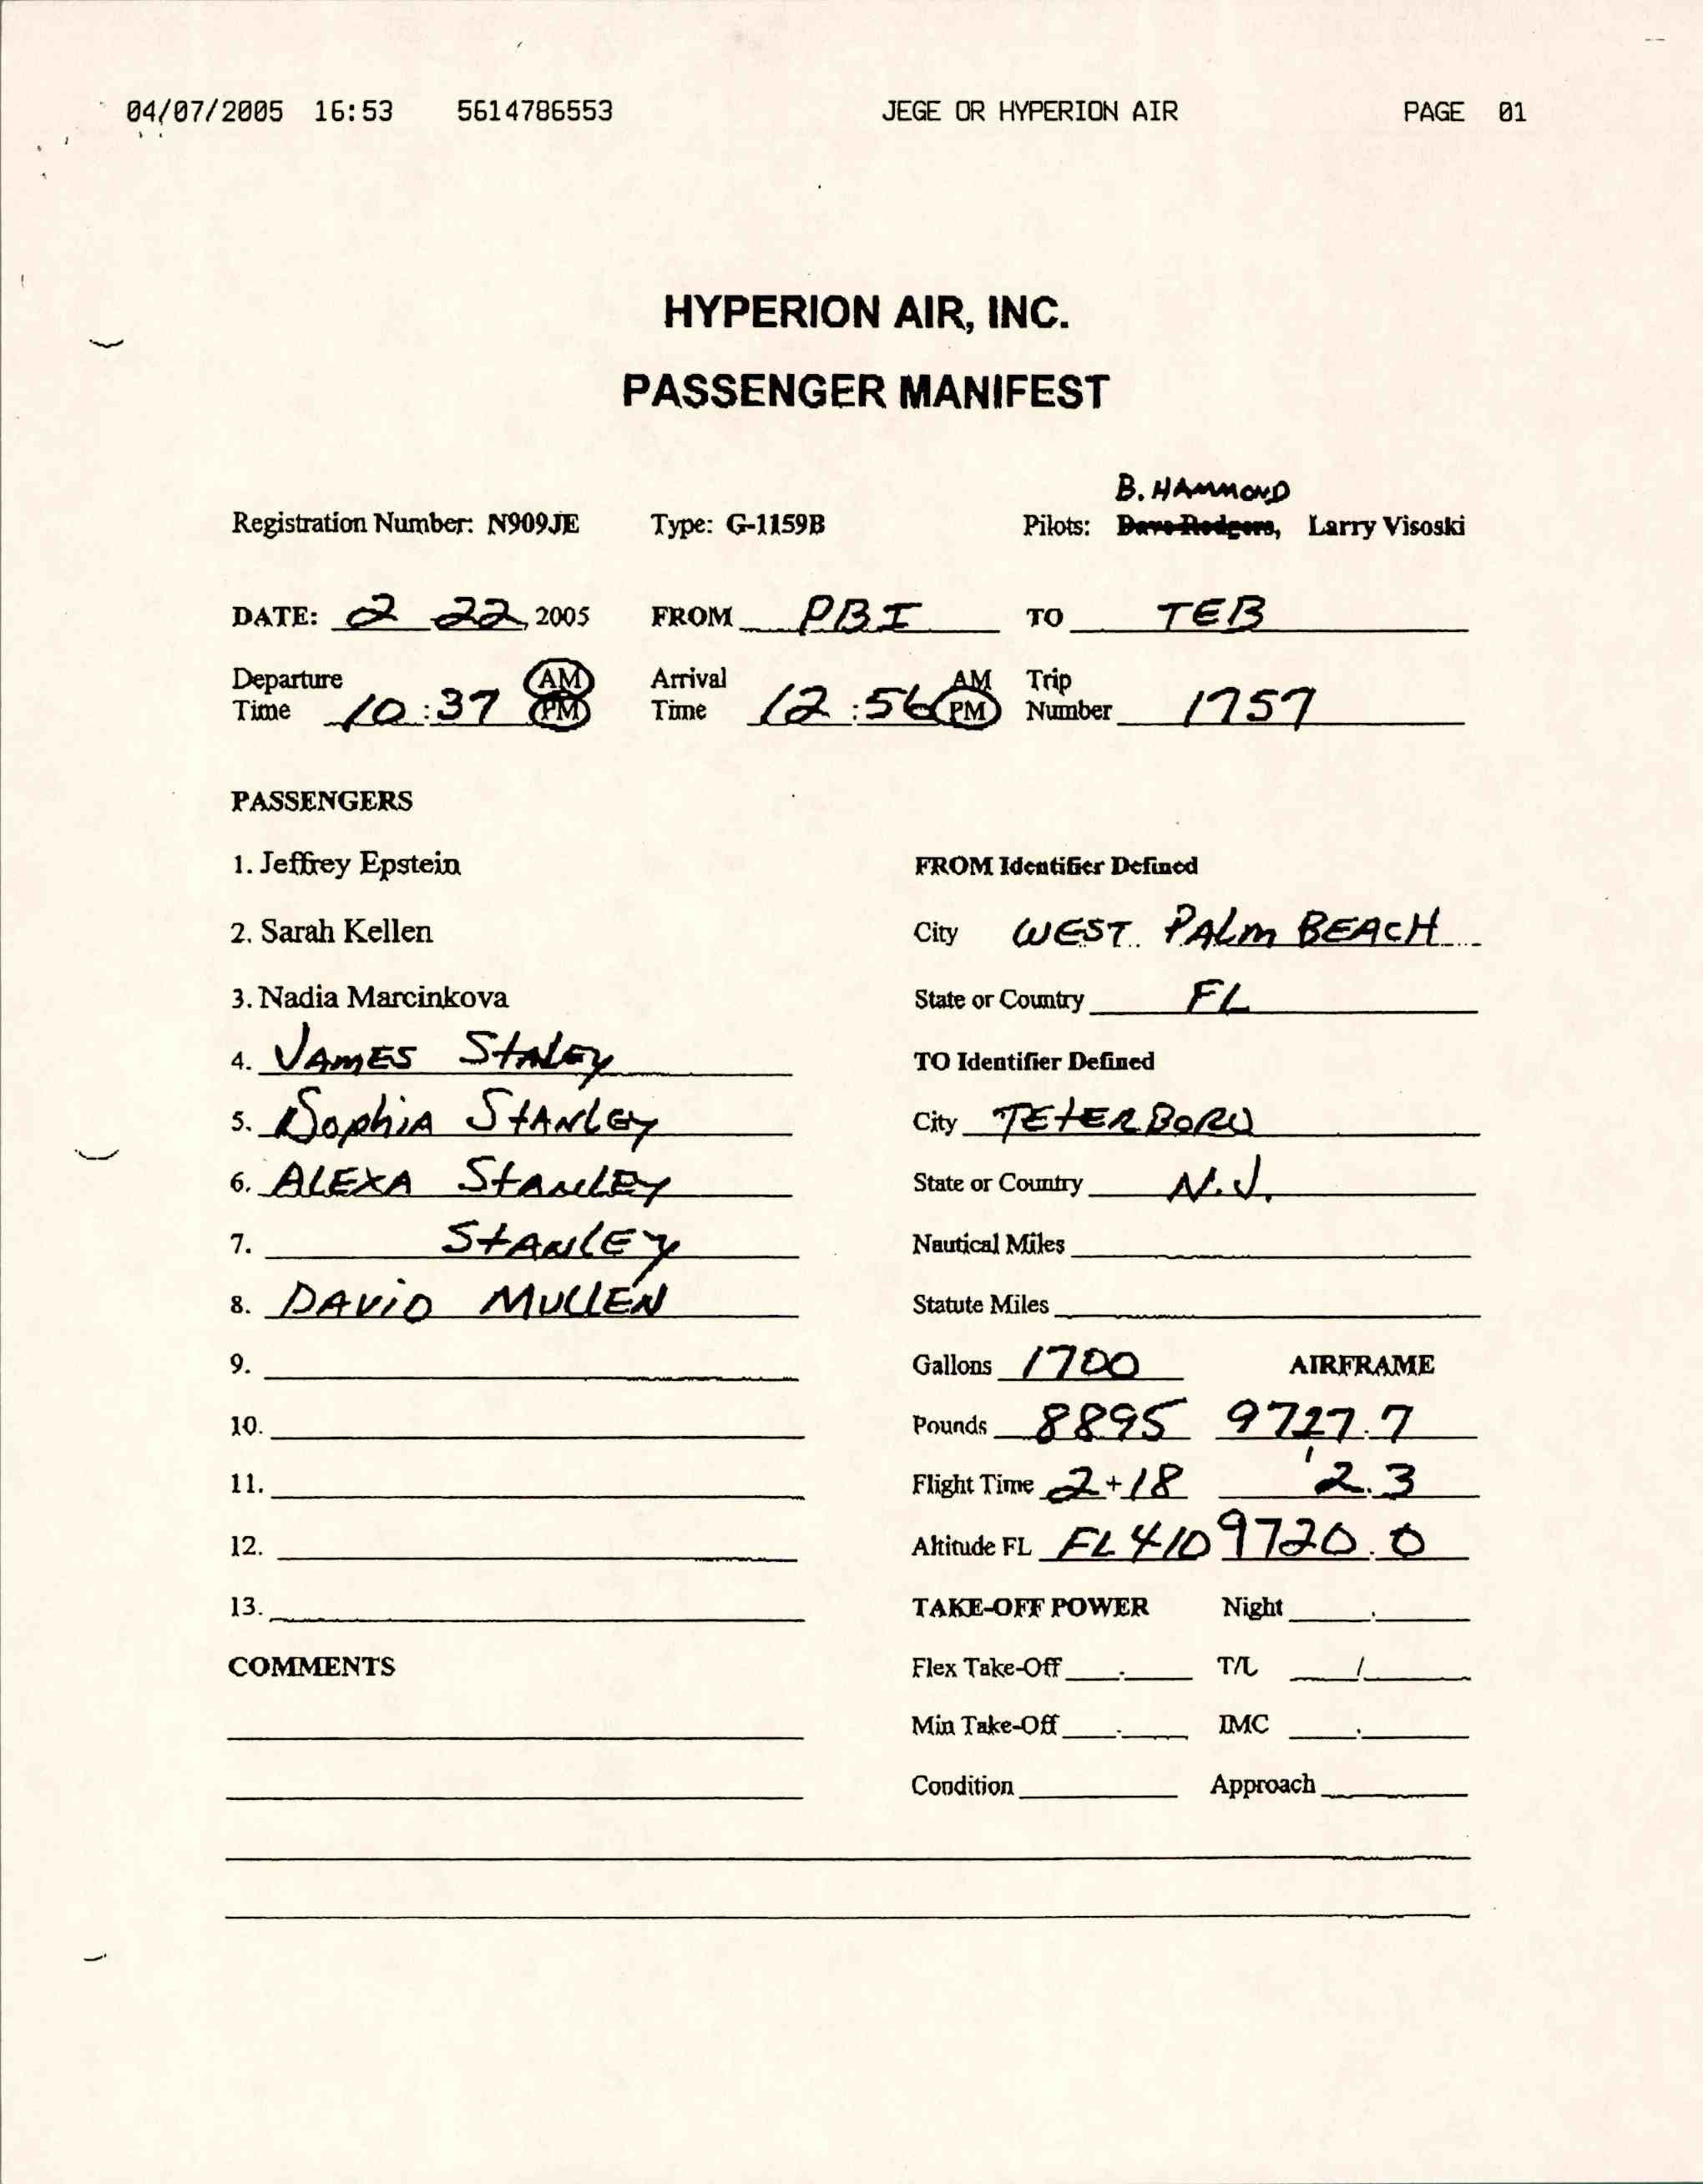 04/07/2005 16:53 5614786553 JEGE OR HYPERION AIR PAGE 01
HYPERION AIR, INC.
PASSENGER MANIFEST
B. HAMMOND
Registration Number: N909JE Type: G-1159B Pilots: Dave Rodgers, Larry Visoski
DATE: 2 22, 2005 FROM PBI TO TEB
Departure Time 10:37 AM PM Arrival Time 12:56 AM PM Trip Number 1757
PASSENGERS
1. Jeffrey Epstein FROM Identifier Defined
2. Sarah Kellen City WEST PALM BEACH
3. Nadia Marcinkova State or Country FL
4. JAMES STALEY TO Identifier Defined
5. Sophia STANLEY City TETERBORO
6. ALEXA STANLEY State or Country N.J.
7. STANLEY Nautical Miles
8. DAVID MULLEN Statute Miles
9. Gallons 1700 AIRFRAME
10. Pounds 8895 9727.7
11. Flight Time 2+18 2.3
12. Altitude FL FL410 9720.0
13. TAKE-OFF POWER Night
COMMENTS Flex Take-Off T/L /
Min Take-Off IMC
Condition Approach